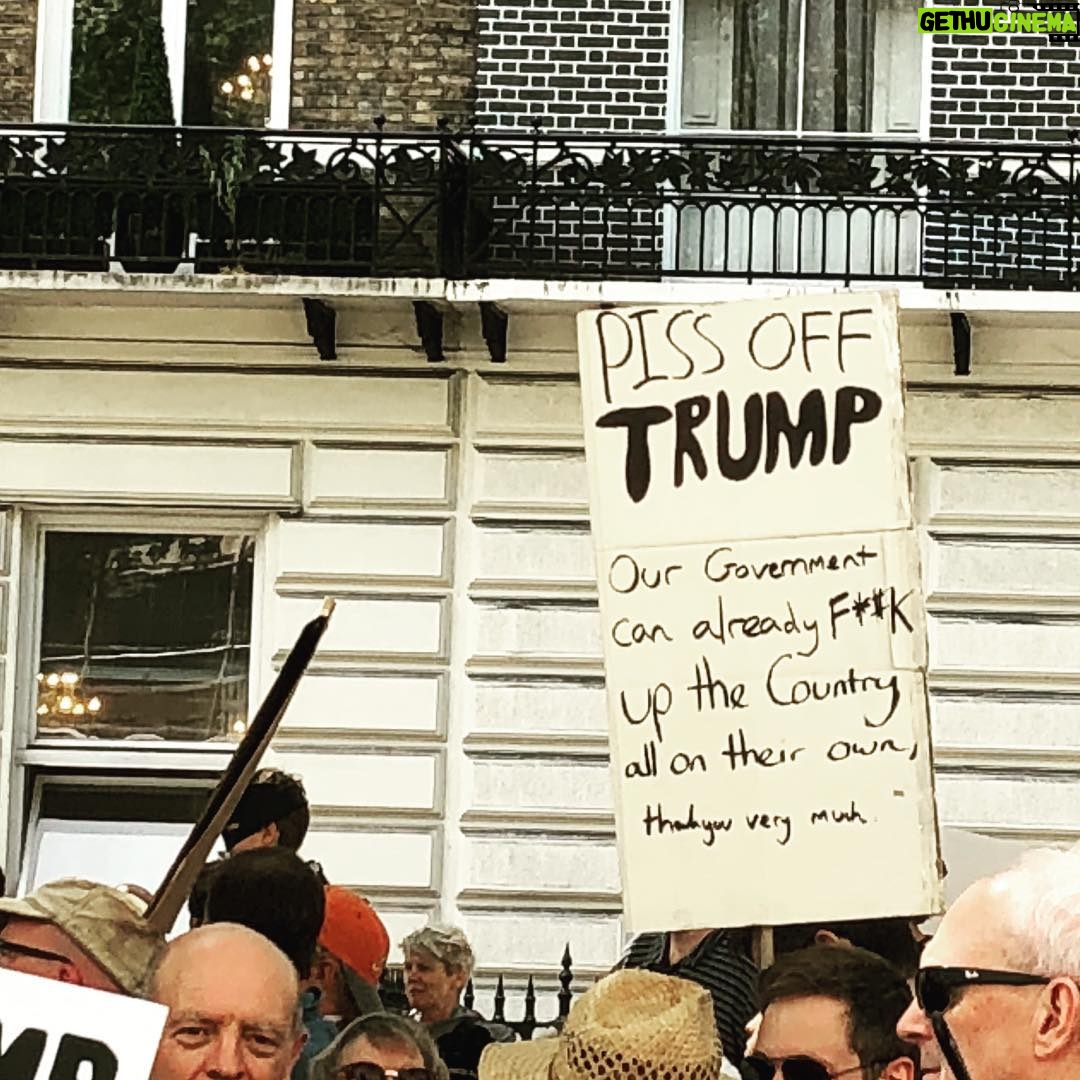 GETHUCINEMA
PISS OFF
TRUMP
Our Government
can already F**K
up the Country
all on their own,
thankyou very much.
MP